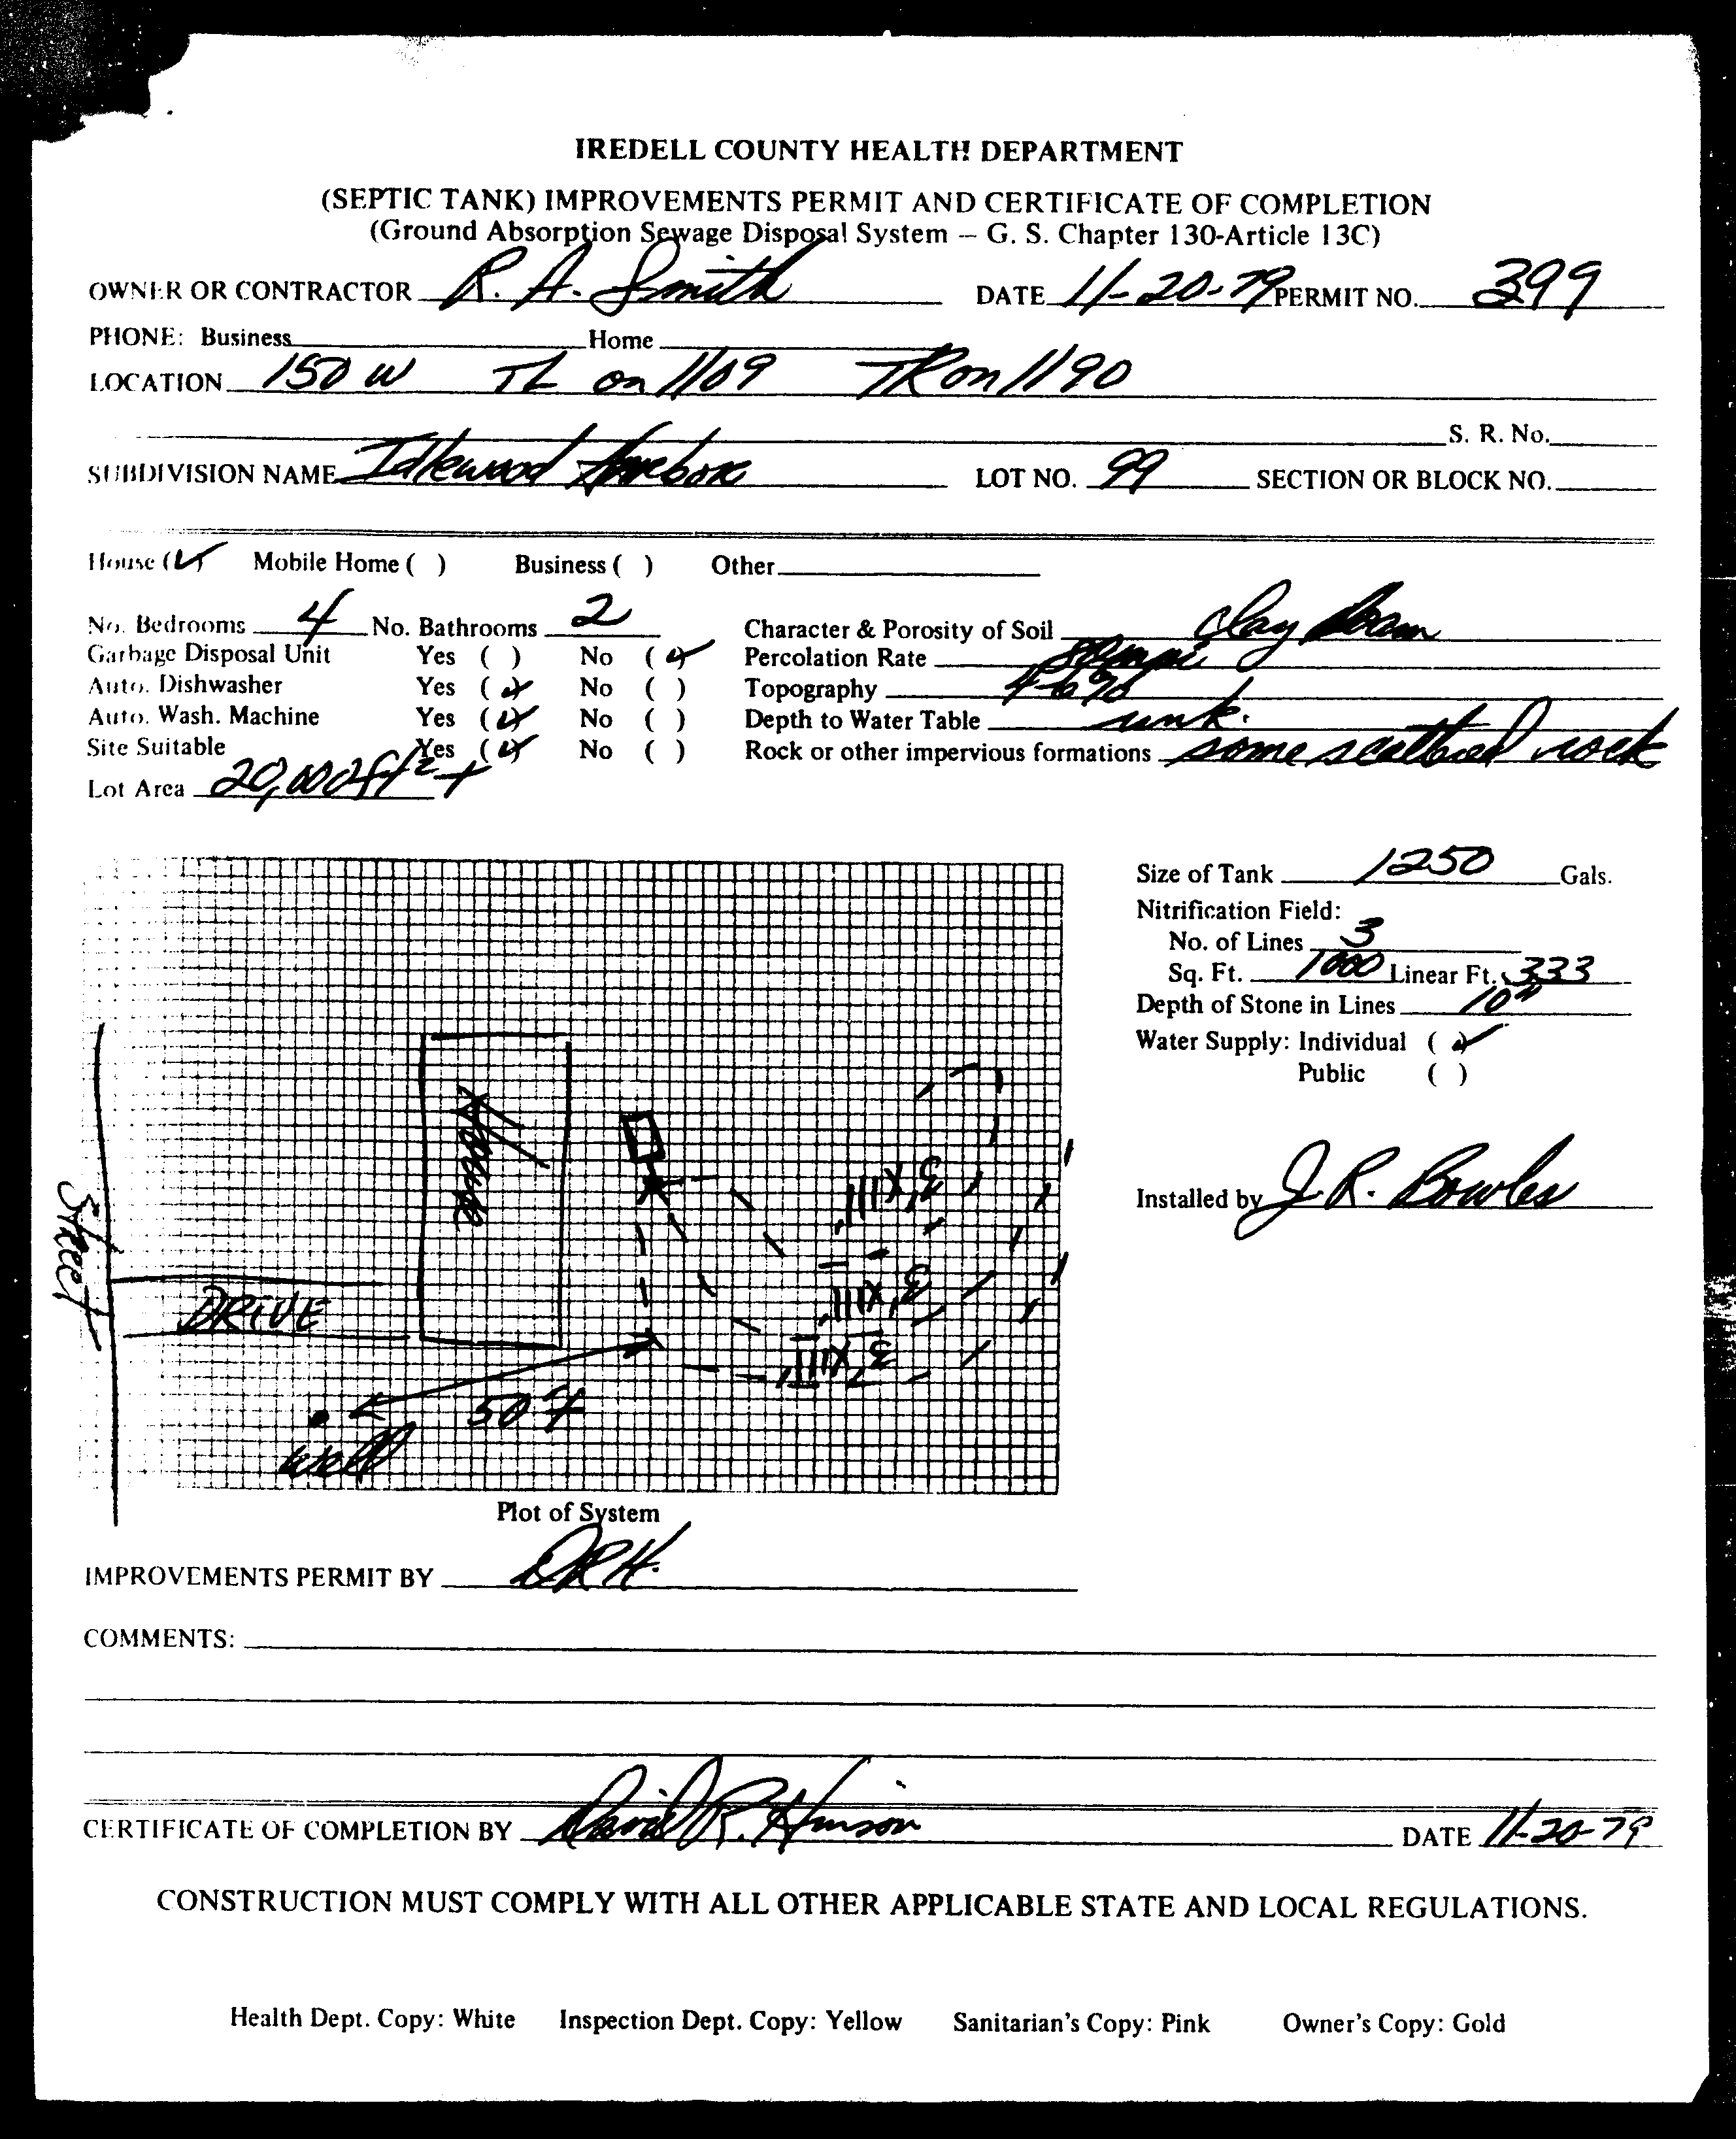 IREDELL COUNTY HEALTH DEPARTMENT
(SEPTIC TANK) IMPROVEMENTS PERMIT AND CERTIFICATE OF COMPLETION
(Ground Absorption Sewage Disposal System – G. S. Chapter 130-Article 13C)
OWNER OR CONTRACTOR R. A. Smith DATE 11-20-79 PERMIT NO. 399
PHONE: Business Home
LOCATION 150 W TL on 1109 TR on 1190
S. R. No.
SUBDIVISION NAME Idlewood LOT NO. 99 SECTION OR BLOCK NO.
House (✓) Mobile Home ( ) Business ( ) Other
No. Bedrooms 4 No. Bathrooms 2 Character & Porosity of Soil clay loam
Garbage Disposal Unit Yes ( ) No (✓) Percolation Rate
Auto. Dishwasher Yes (✓) No ( ) Topography 4-6%
Auto. Wash. Machine Yes (✓) No ( ) Depth to Water Table unk.
Site Suitable Yes (✓) No ( ) Rock or other impervious formations some scattered rock
Lot Area 20,000 ft² +
Size of Tank 1250 Gals.
Nitrification Field:
No. of Lines 3
Sq. Ft. 1000 Linear Ft. 333
Depth of Stone in Lines 10"
Water Supply: Individual (✓)
Public ( )
Installed by J. R. Bowles
House
3'x111'
3'x111'
3'x111'
Street
DRIVE
50 +
well
Plot of System
IMPROVEMENTS PERMIT BY DRH.
COMMENTS:
CERTIFICATE OF COMPLETION BY David R. Hinson DATE 11-20-79
CONSTRUCTION MUST COMPLY WITH ALL OTHER APPLICABLE STATE AND LOCAL REGULATIONS.
Health Dept. Copy: White Inspection Dept. Copy: Yellow Sanitarian's Copy: Pink Owner's Copy: Gold